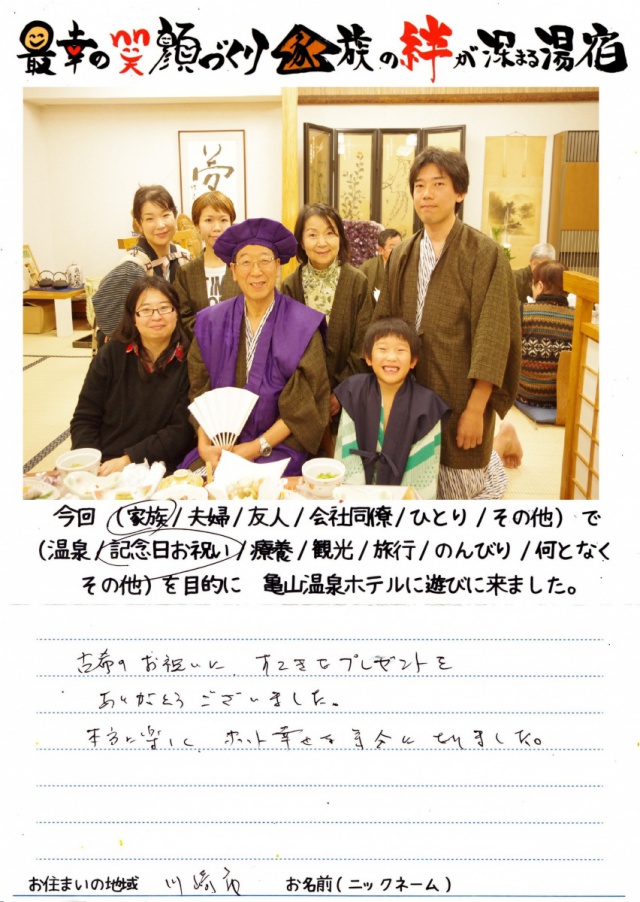 最幸の笑顔づくり 家族の絆が深まる湯宿
夢
今回 (家族/夫婦/友人/会社同僚/ひとり/その他) で
(温泉/記念日お祝い/療養/観光/旅行/のんびり/何となく
その他) を目的に 亀山温泉ホテルに遊びに来ました。
古希のお祝いに、すてきなプレゼントを
ありがとうございました。
本当に楽しく、ホット幸せな気分になりました。
お住まいの地域 川崎市 お名前(ニックネーム)